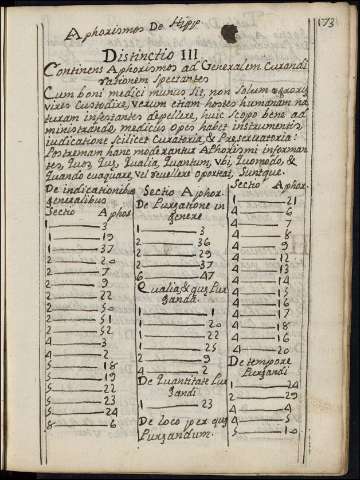 Aphorismos De Hipp.
173
Distinctio III
Continens Aphorismos ad Generalem Curandi
rationem Spectantes
Cum boni medici munus sit, non solum aegroxũ
vires Custodire, verum etiam hostes humanam na
turam infestantes depellere, huic Scopo bene ad
ministrando, medicus opes habet instrumentis,
iudicatione scilicet Curatoria, & Preservatoria:
Postremam hanc moderantur Aphorismi informan
tes, Quos, Que, Qualia, Quantum, vbi, Quomodo, &
Quando evaquare, vel revellere oporteat, Suntque.
De indicationibus
generalibus
Sectio Aphor.
1 3
1 19
1 37
2 20
2 7
2 9
2 22
2 50
2 51
2 52
4 3
5 18
5 19
5 22
5 23
5 24
8 6
Sectio Aphor.
De Purgatione in
genere
1 3
2 36
2 29
2 37
6 47
Qualia, & que Pur
ganda.
1 2
1 20
1 22
1 25
2 9
4 2
De Quantitate Pur
gandi
1 23
De loco per quẽ
Purgandum.
Sectio Aphor.
1 21
4 6
4 7
4 8
4 9
4 12
4 13
4 14
4 16
4 17
4 18
4 16
4 20
De tempore
Purgandi
1 24
2 29
4 4
4 5
5 10